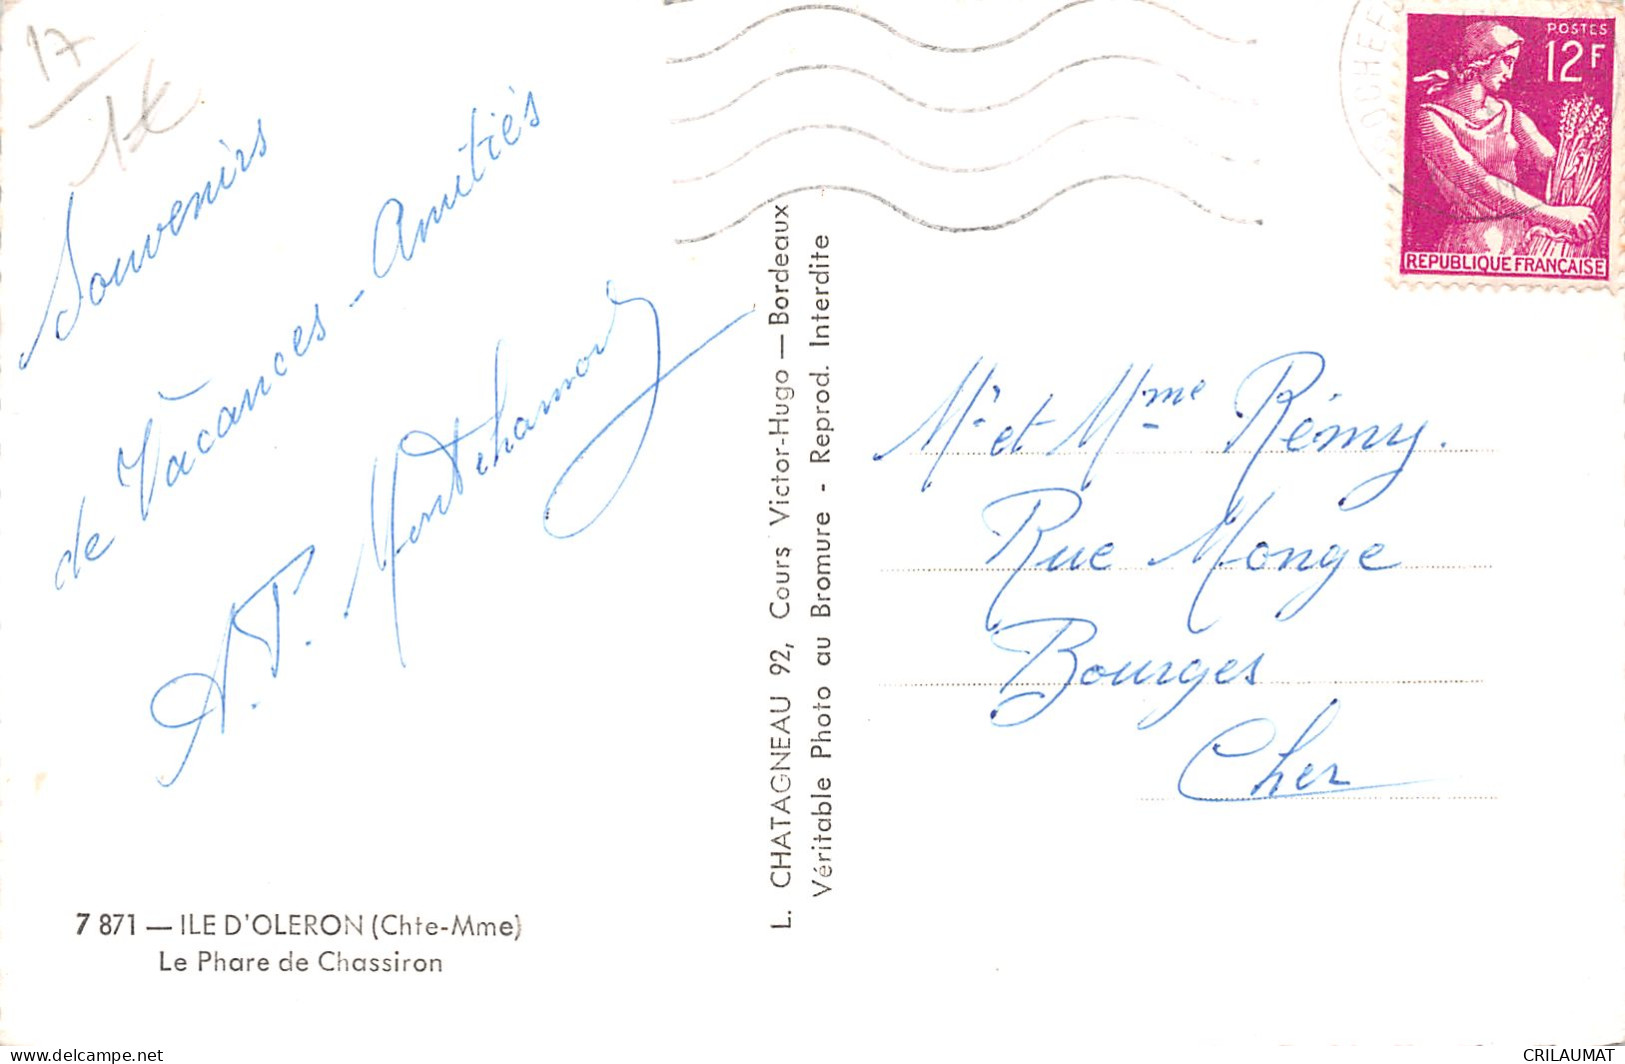 17
1€
Souvenirs
de Vacances - Amitiés
A.P. Montchamont
7 871 — ILE D'OLERON (Chte-Mme)
Le Phare de Chassiron
L. CHATAGNEAU 92, Cours Victor-Hugo — Bordeaux
Véritable Photo au Bromure - Reprod. Interdite
POSTES
12F
REPUBLIQUE FRANÇAISE
Mr et Mme Rémy.
Rue Monge
Bourges
Cher
delcampe.net
CRILAUMAT